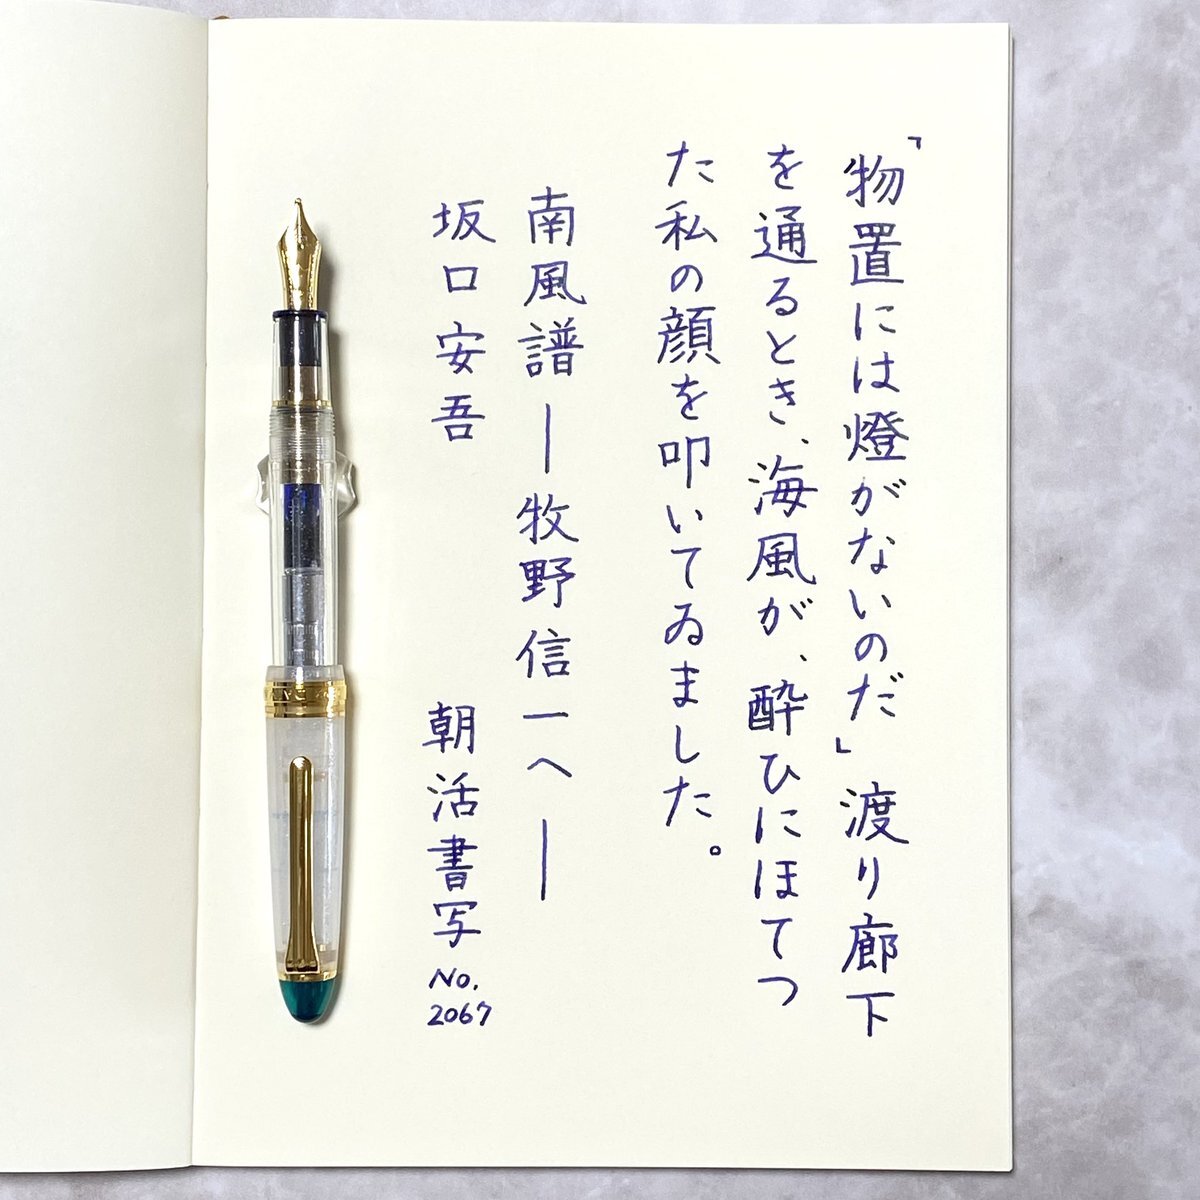 「物置には燈がないのだ」渡り廊下
を通るとき、海風が、酔ひにほてつ
た私の顔を叩いてゐました。
南風譜 ―牧野信一へ―
坂口安吾
朝活書写
No.
2067